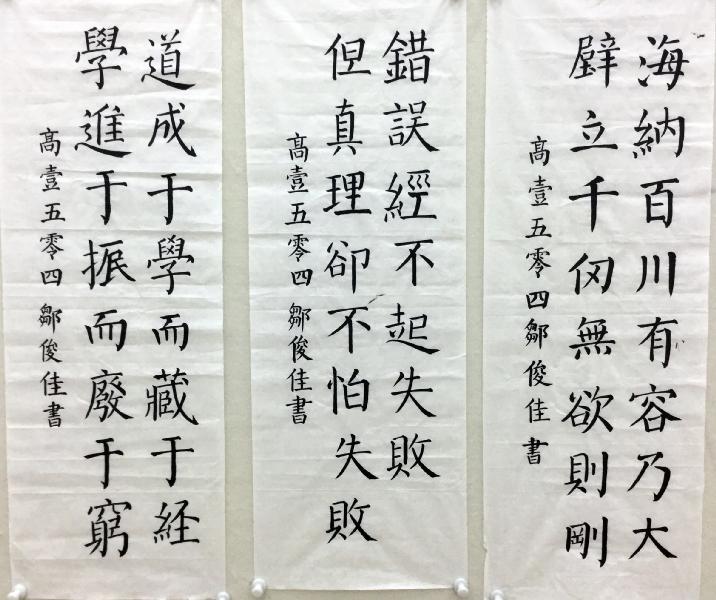 海納百川有容乃大
壁立千仞無欲則剛
高壹五零四鄒俊佳書
錯誤經不起失敗
但真理卻不怕失敗
高壹五零四鄒俊佳書
道成于學而藏于経
學進于振而廢于窮
高壹五零四鄒俊佳書